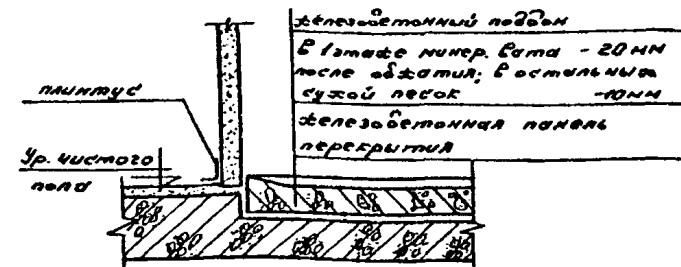 железобетонный поддон
В 1 этаже минер. вата - 20 мм
после обжатия; в остальных
сухой песок -10мм
железобетонная панель
перекрытия
плинтус
Ур. чистого
пола